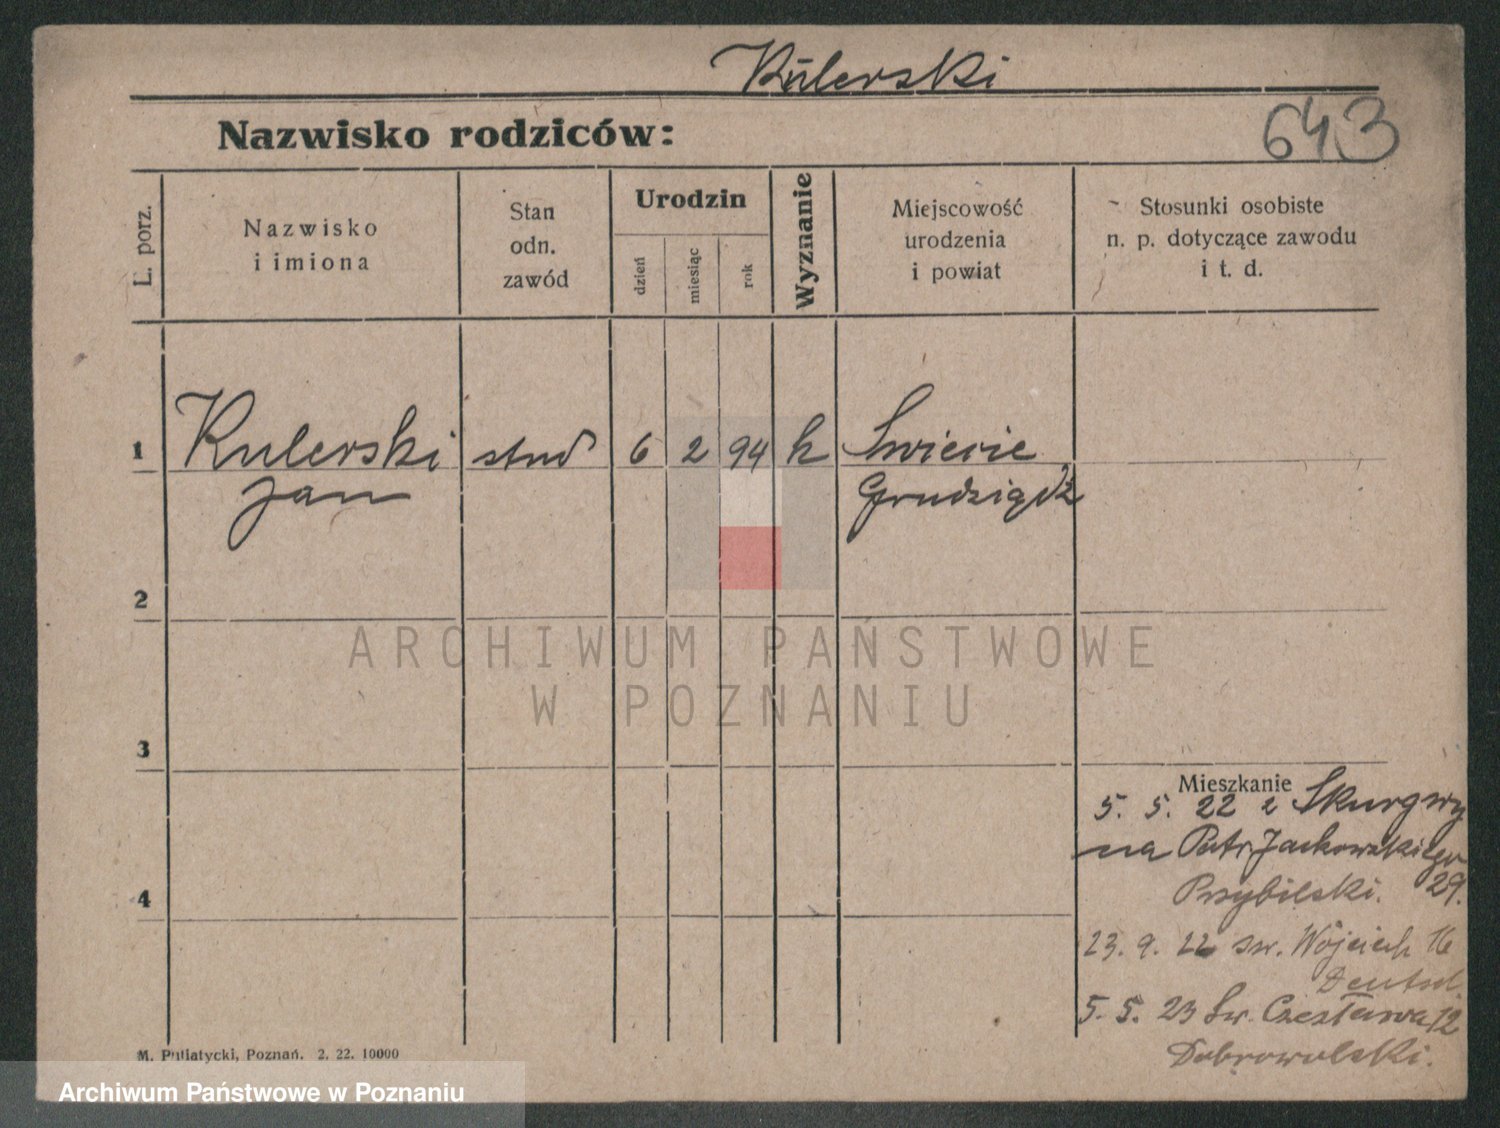 Kulerski
Nazwisko rodziców:
643
L. porz.
Nazwisko
i imiona
Stan
odn.
zawód
Urodzin
dzień
miesiąc
rok
Wyznanie
Miejscowość
urodzenia
i powiat
Stosunki osobiste
n. p. dotyczące zawodu
i t. d.
1
Kulerski
Jan
stud
6
2
94
k
Świecie
Grudziądz
2
ARCHIWUM PAŃSTWOWE
W POZNANIU
3
Mieszkanie
5. 5. 22 z
na Patr. Jackowskiego
29.
4
Przybilski.
23. 9. 22 św. Wojciech 16
5. 5. 23 Św. Czesława 12
Dobrowolski.
M. Putiatycki, Poznań. 2. 22. 10000
Archiwum Państwowe w Poznaniu